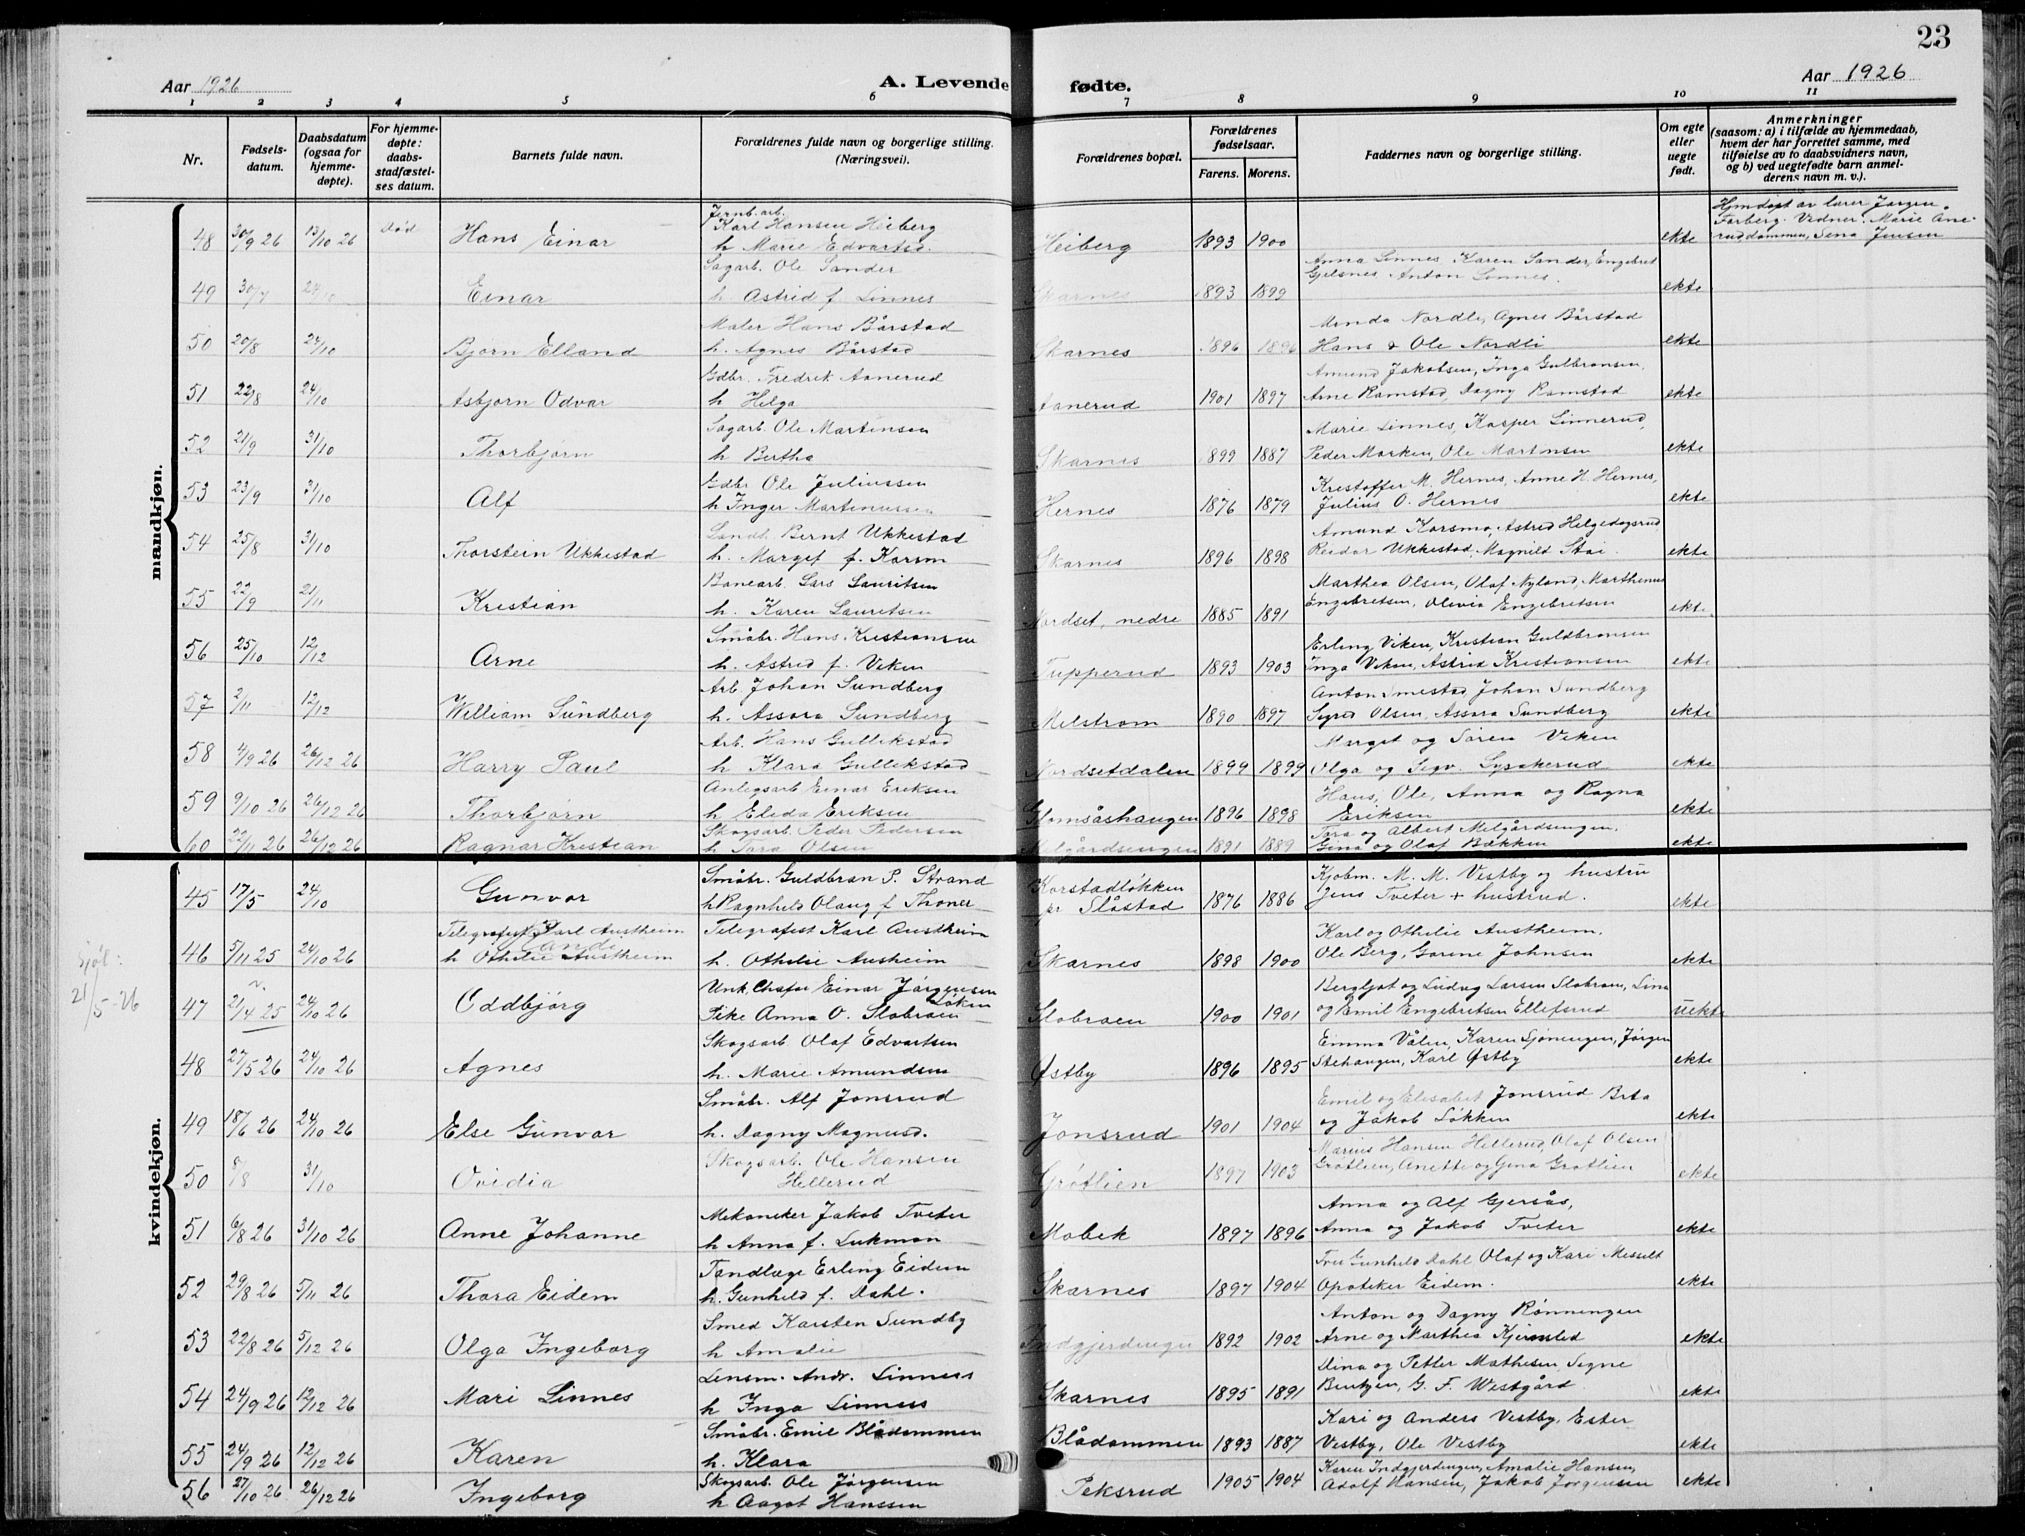 23
Aar 1926
A. Levende fødte.
Aar 1926
1 2 3 4 5 6 7 8 9 10 11
Nr.
Fødsels-datum.
Daabsdatum (ogsaa for hjemme-døpte).
For hjemme-døpte: daabs-stadfæstel-ses datum.
Barnets fulde navn.
Forældrenes fulde navn og borgerlige stilling. (Næringsvei).
Forældrenes bopæl.
Forældrenes fødselsaar.
Farens. Morens.
Faddernes navn og borgerlige stilling.
Om egte eller uegte født.
Anmerkninger
(saasom: a) i tilfælde av hjemmedaab, hvem der har forrettet samme, med tilføielse av to daabsvidners navn, og b) ved uegtefødte barn anmel-derens navn m. v.).
mandkjøn.
48 30/9 26 13/10 26 Død Hans Einar Jernb. arb. Karl Hansen Heiberg
h Marie Edvartsd. Heiberg 1893 1900 ekte Hjmdøpt av lærer Jørgen Farberg. Vidner: Marie Ane-ruddammen, Sena Jensen
49 30/7 24/10 Einar Sagarb. Ole Sander
h Astrid f. Linnes Skarnes 1893 1899 Anna Linnes, Karen Sander, Engebret Gjelsnes Anton Linnes. ekte
50 20/8 24/10 Bjørn Elland Maler Hans Bårstad
h. Agnes Bårstad Skarnes 1896 1896 Nordli, Agnes Bårstad
Hans & Ole Nordli ekte
51 22/8 24/10 Asbjørn Odvar Gdbr. Fredrik Aanerud
h Helga Aanerud 1901 1897 Amund Jakobsen, Inga Gulbransen,
Arne Ramstad, Dagny Ramstad ekte
52 21/9 31/10 Thorbjørn Sagarb. Ole Martensen
h Bertha Skarnes 1899 1887 Marie Linnes, Kasper Linnerud,
Peder Morken, Ole Martinsen ekte
53 23/9 31/10 Alf Gdbr Ole Juliussen
h Inger Martinussen Hernes 1876 1879 Krestoffer M. Hernes, Anne H. Hernes,
Julius O. Hernes ekte
54 25/8 31/10 Thorstein Ukkestad Landb. Bernt Ukkestad
h. Margit f. Korsm Skarnes 1896 1898 Amund Korsmo, Astrid Helgedagsrud
Reidar Ukkestad, Magnild Stai. ekte
55 22/9 21/11 Kristian Banearb. Lars Lauritsen
h. Karen Lauritsen Nordset, nedre 1885 1891 Marthea Olsen, Olaf Nyland, Marthinus
Engebretsen, Olivia Engebretsen ekte
56 25/10 12/12 Arne Småbr. Hans Kristiansen
h. Astrid f. Viken Tupperud 1893 1903 Erling Viken, Kristian Guldbransen
Inga Viken, Astrid Kristiansen ekte
57 2/11 12/12 William Sundberg Arb. Johan Sundberg
h. Assora Sundberg Melstrom 1890 1897 Anton Smestad, Johan Sundberg
Sigrid Olsen, Assora Sundberg ekte
58 4/9 26 26/12 26 Harry Paul Arb. Hans Gullikstad
h Klara Gullekstad Nordsetdalen 1899 1899 Marget og Søren Viken
Olga og Sigv. Lysakerud ekte
59 9/10 26 26/12 26 Thorbjørn Anlegsarb Einar Eriksen
h Elida Eriksen Glomsåshaugen 1896 1898 Hans, Ole, Anna og Ragna
Eriksen ekte
60 22/11 26 26/12 26 Ragnar Kristian Skogsarb Peder Pedersen
h Tora Olsen Melgårdsengen 1891 1889 Tora og Albert Melgårdsengen.
Gina og Olaf Bækken ekte
kvindekjøn.
45 17/5 24/10 Gunvor Småbr. Guldbran P. Strand
h Ragnhild Olaug f Thoner Korstadløkken pr Slåstad 1876 1886 Kjøbm. M. M. Vestby og hustru
Jens Tveter + hustrud. ekte
46 5/11 25 24/10 26 Telegrafist Karl Austheim
h Othilie Austheim Randi Telegrafist Karl Austheim
h. Othilie Ausheim Skarnes 1898 1900 Karl og Othilie Austheim.
Ole Berg, Gorine Johnsen ekte
21/5-26
47 21/4 25 24/10 26 Oddbjørg Unk, Chafør Einar Jørgensen Løken
Pike Anna O. Slobraen Slobraen 1900 1901 Bergljot og Ludvg Larsen Slobraen, Lina
og Emil Engebretsen Ellefsrud uekte
48 27/5 26 24/10 26 Agnes Skogsarb. Olaf Edvartsen
h. Marie Amundsen Østby 1896 1895 Emma Vålen, Karen Sjøningen, Jørgen
Stehaugen, Karl Østby ekte
49 18/6 26 24/10 26 Else Gunvor Småbr. Alf Jonsrud
h. Dagny Magnusd. Jonsrud 1901 1904 Emil og Elisabet Jonsrud Brta
og Jakob Løkken ekte
50 8/8 31/10 Ovidia Skogsarb. Ole Hansen
Hellerud Grøtlien 1897 1903 Marius Hansen Hellerud, Olaf Olsen
Grøtlien, Anette og Gina Grøtlien ekte
51 6/8 26 31/10 26 Anne Johanne Mekaniker Jakob Tveter
h Anna f. Lukman Mobek 1897 1896 Anna og Alf Gjersås,
Anna og Jakob Tveter ekte
52 29/8 26 5/11 26 Thora Eidem Tandlæge Erling Eidem
h. Gunhild f. Dahl. Skarnes 1897 1904 Fru Gunhild Dahl Olaf og Kari Messelt
Opoteker Eidem. ekte
53 22/8 26 5/12 26 Olga Ingeborg Smed Karsten Sundby
h Amalie Indgjerdingen 1892 1902 Anton og Dagny Rønningen
Arne og Marthea Kjernsled ekte
54 24/9 26 12/12 26 Mari Linnes Lensm. Andr. Linness
h Inga Linness Skarnes 1895 1891 Dina og Petter Mathisen Signe
Bentzen, G. F. Westgård ekte
55 24/9 26 12/12 26 Karen Småbr. Emil Blådammen
h. Klara Blådammen 1893 1887 Kari og Anders Vestby, Ester
Vestby, Ole Vestby ekte
56 27/10 26 26/12 26 Ingeborg Skogsarb. Ole Jørgensen
h Aagot Hanssen Peksrud 1905 1904 Karen Indgjerdingen, Amalie Hansen,
Adolf Hansen, Jakob Jørgensen ekte